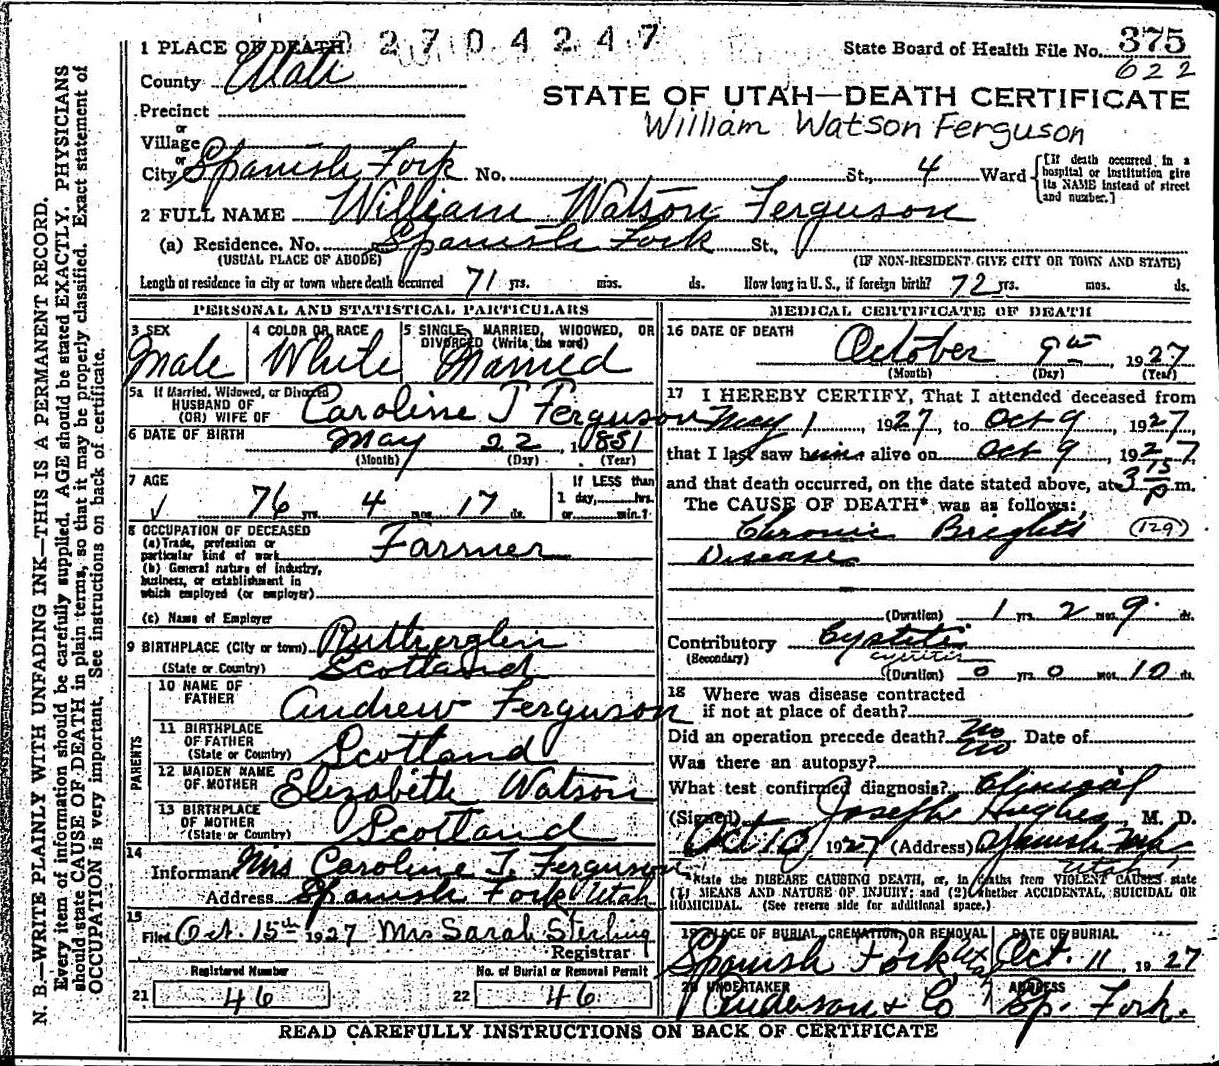 2 7 0 4 2 4 7
1 PLACE OF DEATH
State Board of Health File No. 375
622
County Utah
STATE OF UTAH—DEATH CERTIFICATE
Precinct
William Watson Ferguson
or
Village
or
City Spanish Fork No. St., 4 Ward
[If death occurred in a
hospital or institution give
its NAME instead of street
and number.]
2 FULL NAME William Watson Ferguson
(a) Residence. No. Spanish Fork St.,
(USUAL PLACE OF ABODE) (IF NON-RESIDENT GIVE CITY OR TOWN AND STATE)
Length of residence in city or town where death occurred 71 yrs. mos. ds. How long in U. S., if foreign birth? 72 yrs. mos. ds.
PERSONAL AND STATISTICAL PARTICULARS
3 SEX
Male
4 COLOR OR RACE
White
5 SINGLE, MARRIED, WIDOWED, OR
DIVORCED (Write the word)
Married
5a If Married, Widowed, or Divorced
HUSBAND OF
(OR) WIFE OF Caroline J Ferguson
6 DATE OF BIRTH May 22, 1851
(Month) (Day) (Year)
7 AGE
76 yrs. 4 mos. 17 ds.
If LESS than
1 day, hrs.
or min.?
8 OCCUPATION OF DECEASED
(a) Trade, profession or
particular kind of work Farmer
(b) General nature of industry,
business, or establishment in
which employed (or employer)
(c) Name of Employer
9 BIRTHPLACE (City or town) Rutherglen
(State or Country) Scotland
PARENTS
10 NAME OF
FATHER Andrew Ferguson
11 BIRTHPLACE
OF FATHER
(State or Country) Scotland
12 MAIDEN NAME
OF MOTHER Elizabeth Watson
13 BIRTHPLACE
OF MOTHER
(State or Country) Scotland
14
Informant Mrs Caroline J. Ferguson
Address Spanish Fork Utah
15
Filed Oct. 15th 1927 Mrs Sarah Sterling
Registrar
Registered Number No. of Burial or Removal Permit
21 46 22 46
MEDICAL CERTIFICATE OF DEATH
16 DATE OF DEATH
October 9th 1927
(Month) (Day) (Year)
17 I HEREBY CERTIFY, That I attended deceased from
May 1 1927, to Oct 9 1927,
that I last saw him alive on Oct 9, 1927
and that death occurred, on the date stated above, at 3 15 P m.
The CAUSE OF DEATH* was as follows:
Chronic Brights (129)
Disease
(Duration) 1 yrs. 2 mos. 9 ds.
Contributory Cystitis
(Secondary) cystitis
(Duration) 0 yrs. 0 mos. 10 ds.
18 Where was disease contracted
if not at place of death?
Did an operation precede death? no Date of
Was there an autopsy? no
What test confirmed diagnosis? Clinical
(Signed) Joseph Hughes, M. D.
Oct 10 1927 (Address) Spanish Fork,
Utah
*State the DISEASE CAUSING DEATH, or, in deaths from VIOLENT CAUSES state
(1) MEANS AND NATURE OF INJURY; and (2) whether ACCIDENTAL, SUICIDAL OR
HOMICIDAL. (See reverse side for additional space.)
19 PLACE OF BURIAL, CREMATION, OR REMOVAL DATE OF BURIAL
Spanish Fork, Utah Oct. 11, 1927
20 UNDERTAKER ADDRESS
Anderson & Co Sp. Fork.
READ CAREFULLY INSTRUCTIONS ON BACK OF CERTIFICATE
N. B.—WRITE PLAINLY WITH UNFADING INK—THIS IS A PERMANENT RECORD.
Every item of information should be carefully supplied. AGE should be stated EXACTLY. PHYSICIANS
should state CAUSE OF DEATH in plain terms, so that it may be properly classified. Exact statement of
OCCUPATION is very important. See instructions on back of certificate.